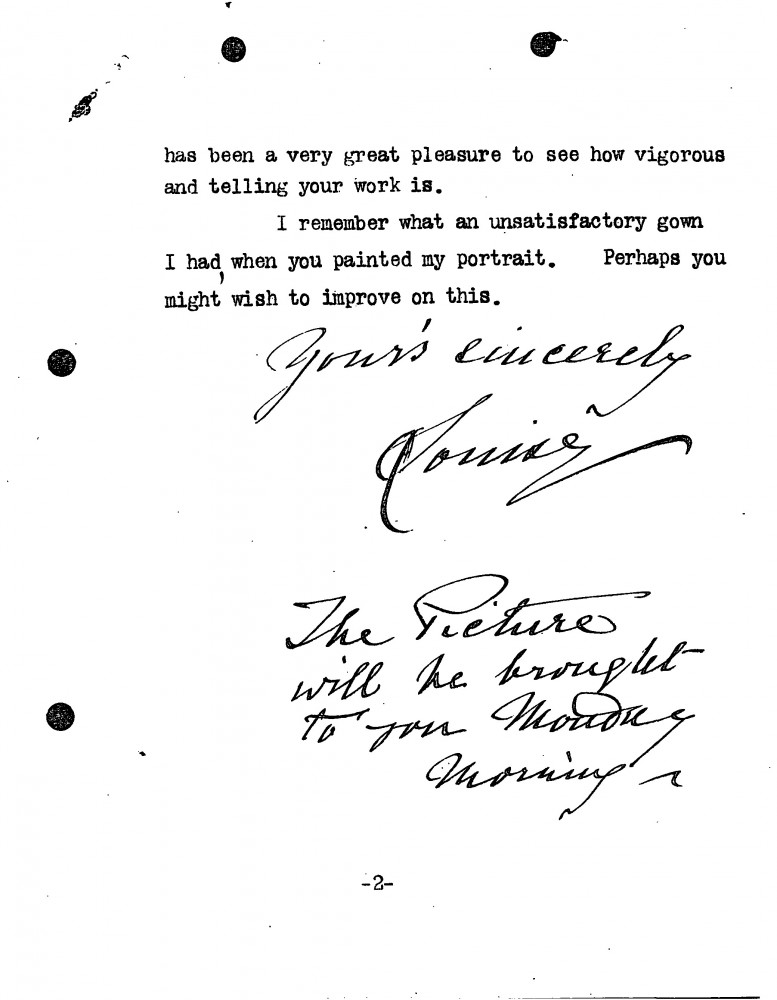 has been a very great pleasure to see how vigorous
and telling your work is.
I remember what an unsatisfactory gown
I had, when you painted my portrait. Perhaps you
might wish to improve on this.
Your's sincerely
Louise
The Picture
will be brought
to you Monday
Morning
-2-